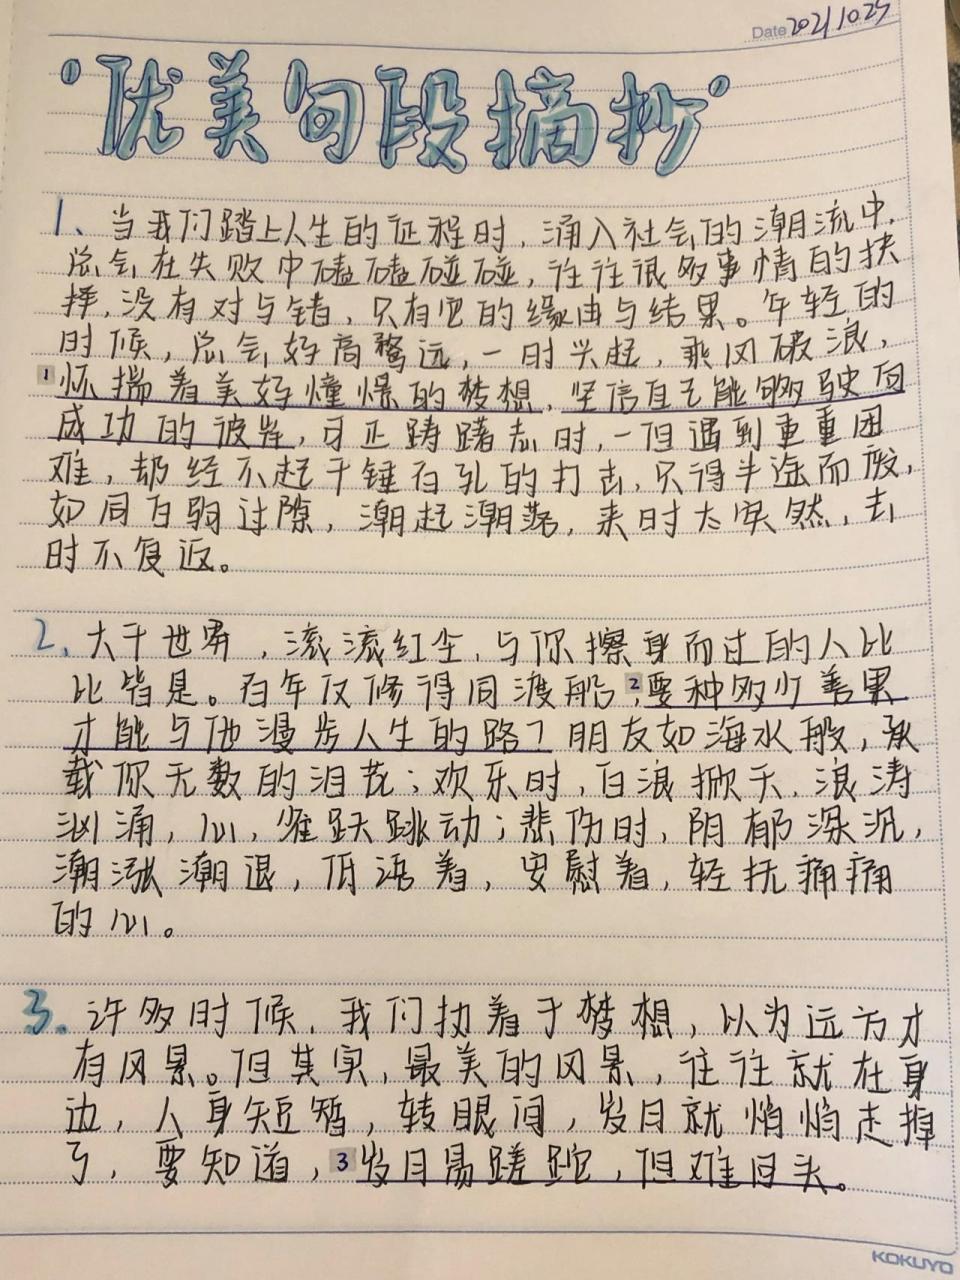 Date 2021 10 25
"优美句段摘抄"
1、当我们踏上人生的征程时,涌入社会的潮流中,
总会在失败中磕磕碰碰,往往很多事情的抉
择,没有对与错,只有它的缘由与结果。年轻的
时候,总会好高骛远,一时兴起,乘风破浪,
1怀揣着美好憧憬的梦想,坚信自己能够驶向
成功的彼岸,可正踌躇志时,一但遇到重重困
难,却经不起千锤百孔的打击,只得半途而废,
如同白驹过隙,潮起潮落,来时太突然,去
时不复返。
2、大千世界,滚滚红尘,与你擦身而过的人比
比皆是。百年仅修得同渡船,2要种多少善果
才能与他漫步人生的路?朋友如海水般,承
载你无数的泪花;欢乐时,白浪掀天,浪涛
汹涌,心,雀跃跳动;悲伤时,阴郁深沉,
潮涨潮退,低语着,安慰着,轻抚痛痛
的心。
3、许多时候,我们执着于梦想,以为远方才
有风景。但其实,最美的风景,往往就在身
边,人身短暂,转眼间,岁月就悄悄走掉
了,要知道,3岁月易蹉跎,但难回头。
KOKUYO